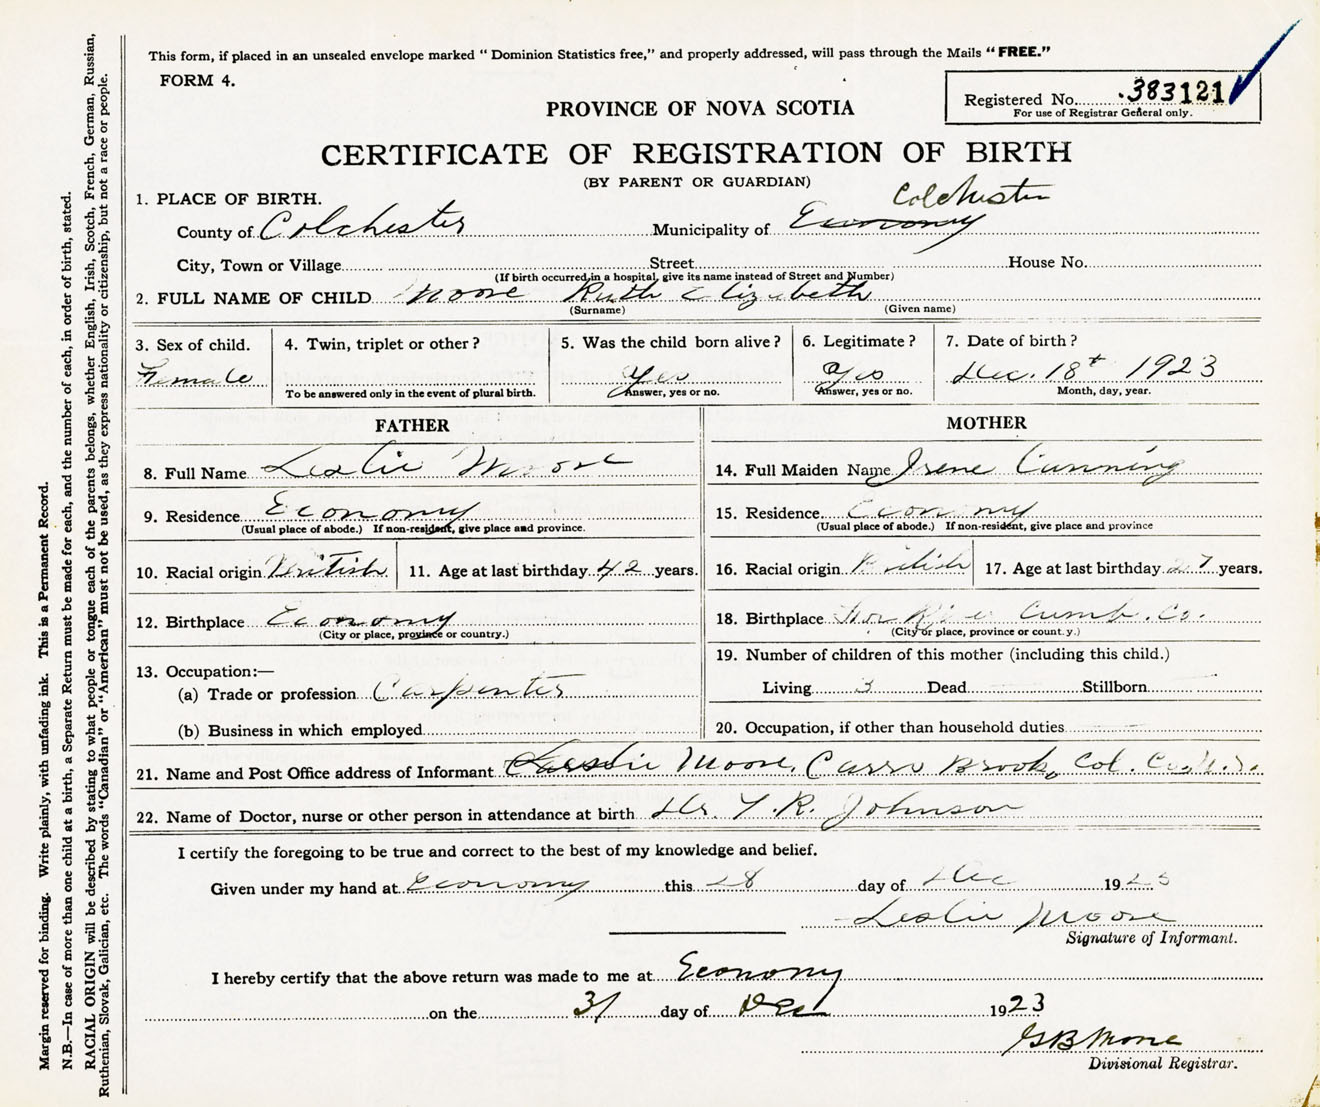 This form, if placed in an unsealed envelope marked "Dominion Statistics free," and properly addressed, will pass through the Mails "FREE."
FORM 4.
Registered No. 383121
For use of Registrar General only.
PROVINCE OF NOVA SCOTIA
CERTIFICATE OF REGISTRATION OF BIRTH
(BY PARENT OR GUARDIAN)
1. PLACE OF BIRTH.
Colchester
County of Colchester Municipality of Economy
City, Town or Village Street House No.
(If birth occurred in a hospital, give its name instead of Street and Number)
2. FULL NAME OF CHILD Moore Ruth Elizabeth
(Surname) (Given name)
3. Sex of child. 4. Twin, triplet or other? 5. Was the child born alive? 6. Legitimate? 7. Date of birth?
Female Yes Yes Dec. 18t 1923
To be answered only in the event of plural birth. Answer, yes or no. Answer, yes or no. Month, day, year.
FATHER MOTHER
8. Full Name Leslie Moore 14. Full Maiden Name Irene Canning
9. Residence Economy 15. Residence Economy
(Usual place of abode.) If non-resident, give place and province. (Usual place of abode.) If non-resident, give place and province
10. Racial origin British 11. Age at last birthday 42 years. 16. Racial origin British 17. Age at last birthday 27 years.
12. Birthplace Economy 18. Birthplace Cumb. Co.
(City or place, province or country.) (City or place, province or county.)
19. Number of children of this mother (including this child.)
13. Occupation:—
(a) Trade or profession Carpenter Living 3 Dead Stillborn
(b) Business in which employed 20. Occupation, if other than household duties
21. Name and Post Office address of Informant Leslie Moore, Carrs Brook, Col. Co. N.S.
22. Name of Doctor, nurse or other person in attendance at birth Dr. T. R. Johnson
I certify the foregoing to be true and correct to the best of my knowledge and belief.
Given under my hand at Economy this 28 day of Dec 1923
Leslie Moore
Signature of Informant.
I hereby certify that the above return was made to me at Economy
on the 31 day of Dec 1923
G B Moore
Divisional Registrar.
Margin reserved for binding. Write plainly, with unfading ink. This is a Permanent Record.
N.B.—In case of more than one child at a birth, a Separate Return must be made for each, and the number of each, in order of birth, stated.
RACIAL ORIGIN will be described by stating to what people or tongue each of the parents belongs, whether English, Irish, Scotch, French, German, Russian,
Ruthenian, Slovak, Galician, etc. The words "Canadian" or "American" must not be used, as they express nationality or citizenship, but not a race or people.